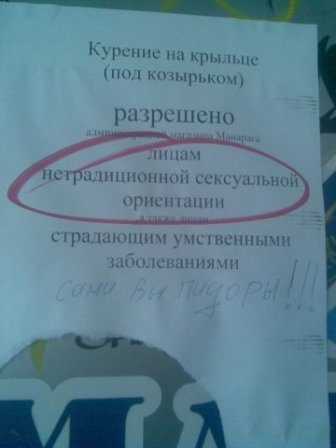 Курение на крыльце
(под козырьком)
разрешено
администрацией магазина Манарага
лицам
нетрадиционной сексуальной
ориентации
а также лицам
страдающим умственными
заболеваниями
сами вы пидоры!!!